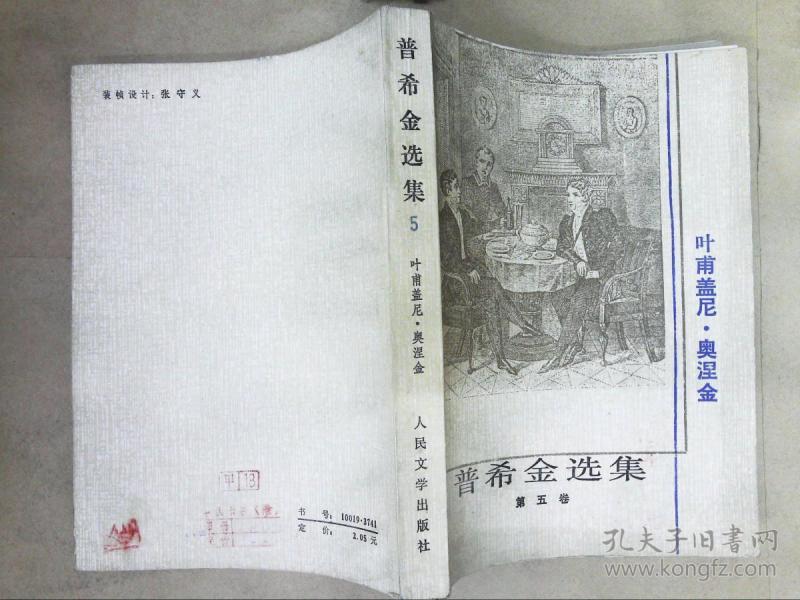 装帧设计：张守义
书号：10019·3741
定价：2.05元
普希金选集
5
叶甫盖尼·奥涅金
人民文学出版社
叶甫盖尼·奥涅金
普希金选集
第五卷
孔夫子旧書网
www.kongfz.com